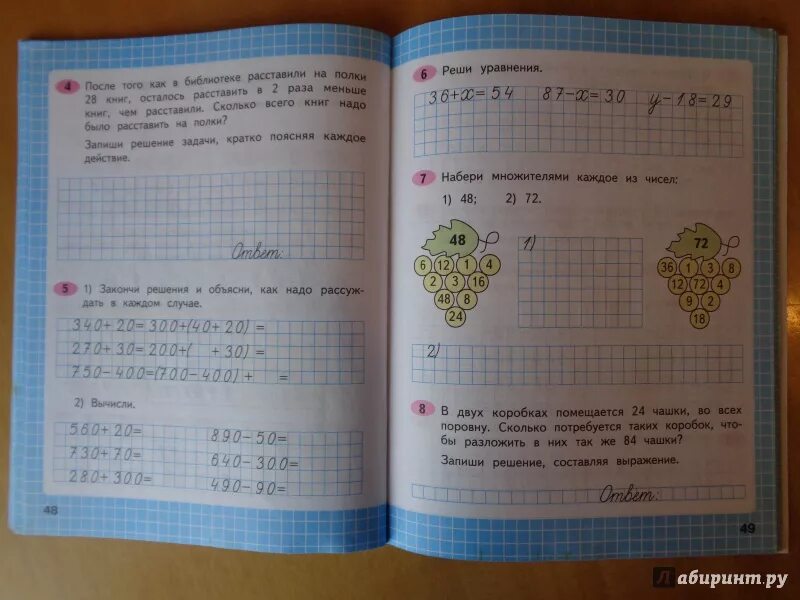 4 После того как в библиотеке расставили на полки
28 книг, осталось расставить в 2 раза меньше
книг, чем расставили. Сколько всего книг надо
было расставить на полки?
Запиши решение задачи, кратко поясняя каждое
действие.
Ответ:
5 1) Закончи решения и объясни, как надо рассуж-
дать в каждом случае.
340+20=300+(40+20) =
270+30=200+( +30) =
750-400=(700-400) + =
2) Вычисли.
560+20= 890-50=
730+70= 640-300=
280+300= 490-90=
48
6 Реши уравнения.
36+x=54 87-x=30 y-18=29
7 Набери множителями каждое из чисел:
1) 48; 2) 72.
48
6 12 1 4
2 3 16
48 8
24
1)
72
36 1 3 8
12 72 4
9 2
18
2)
8 В двух коробках помещается 24 чашки, во всех
поровну. Сколько потребуется таких коробок, что-
бы разложить в них так же 84 чашки?
Запиши решение, составляя выражение.
Ответ:
49
Лабиринт.ру